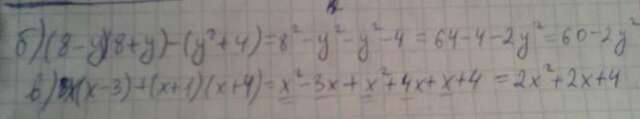 б) (8-y)(8+y)-(y²+4)=8²-y²-y²-4=64-4-2y²=60-2y²
в) x(x-3)+(x+1)(x+4)=x²-3x+x²+4x+x+4=2x²+2x+4